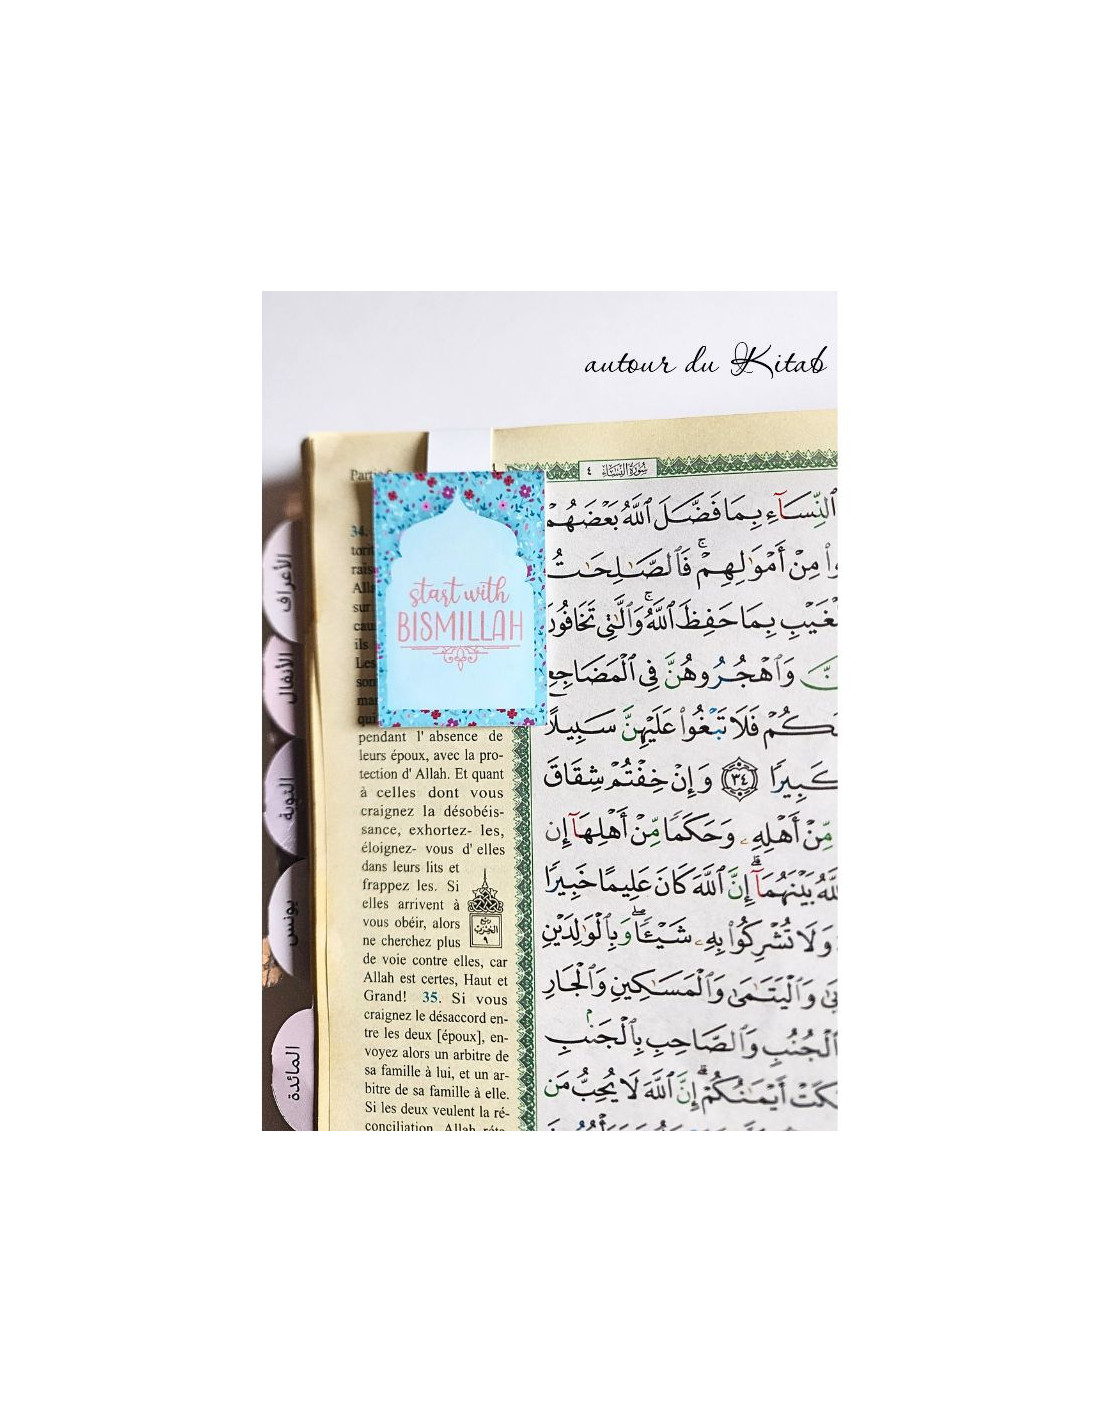 autour du Kitab
سُورَةُ النِّسَاءِ ٤
start with
BISMILLAH
ٱلنِّسَآءِ بِمَا فَضَّلَ ٱللَّهُ بَعْضَهُمْ
مِنْ أَمْوَٰلِهِمْ ۚ فَٱلصَّـٰلِحَـٰتُ
بِمَا حَفِظَ ٱللَّهُ ۚ وَٱلَّـٰتِى تَخَافُونَ
وَٱهْجُرُوهُنَّ فِى ٱلْمَضَاجِعِ
فَلَا تَبْغُوا۟ عَلَيْهِنَّ سَبِيلًا
كَبِيرًا ٣٤ وَإِنْ خِفْتُمْ شِقَاقَ
مِّنْ أَهْلِهِۦ وَحَكَمًا مِّنْ أَهْلِهَآ إِن
بَيْنَهُمَآ ۗ إِنَّ ٱللَّهَ كَانَ عَلِيمًا خَبِيرًا
وَلَا تُشْرِكُوا۟ بِهِۦ شَيْـًٔا ۖ وَبِٱلْوَٰلِدَيْنِ
وَٱلْيَتَـٰمَىٰ وَٱلْمَسَـٰكِينِ وَٱلْجَارِ
ٱلْجُنُبِ وَٱلصَّاحِبِ بِٱلْجَنۢبِ
أَيْمَـٰنُكُمْ ۗ إِنَّ ٱللَّهَ لَا يُحِبُّ مَن
34.
sur
ils
Les
pendant l' absence de
leurs époux, avec la pro-
tection d' Allah. Et quant
à celles dont vous
craignez la désobéis-
sance, exhortez- les,
éloignez- vous d' elles
dans leurs lits et
frappez les. Si
elles arrivent à
vous obéir, alors
ne cherchez plus
de voie contre elles, car
Allah est certes, Haut et
Grand! 35. Si vous
craignez le désaccord en-
tre les deux [époux], en-
voyez alors un arbitre de
sa famille à lui, et un ar-
bitre de sa famille à elle.
Si les deux veulent la ré-
conciliation, Allah
ربع
الحزب
٩
الأعراف
الأنفال
التوبة
يونس
المائدة